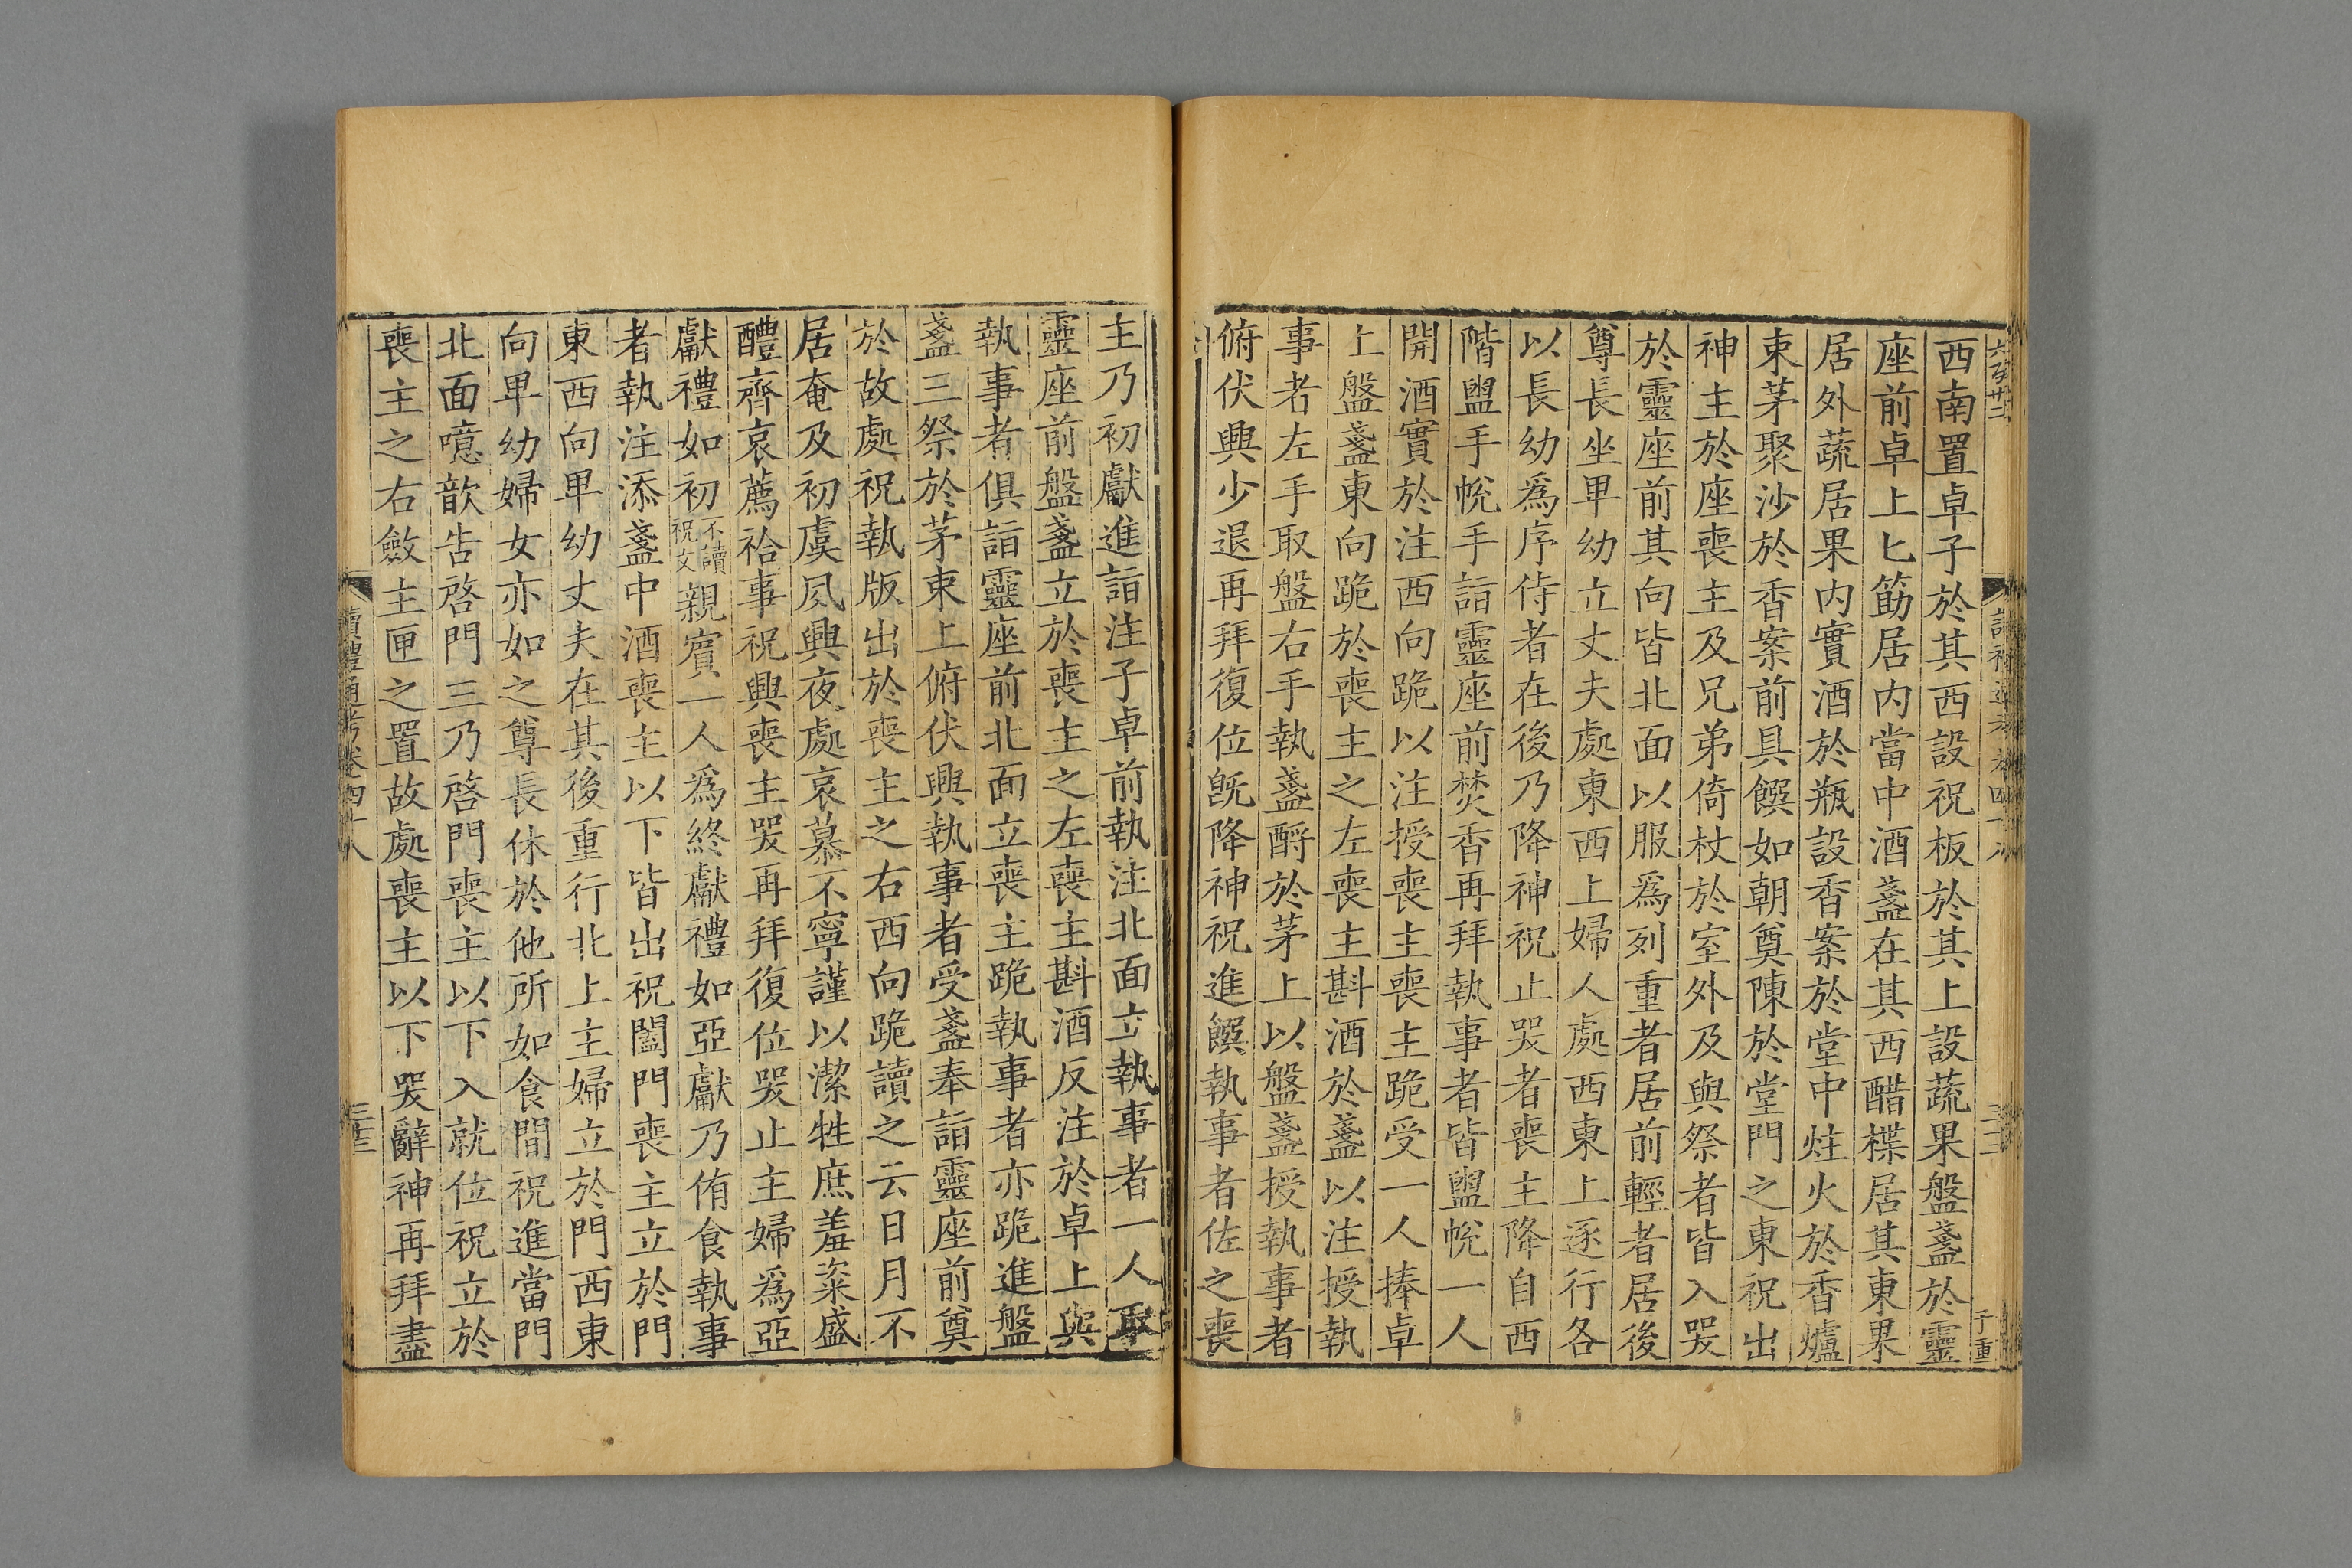 六百廿二
西南置卓子於其西設祝板於其上設蔬果盤盞於靈
座前卓上匕筯居内當中酒盞在其西醋楪居其東果
居外蔬居果内實酒於瓶設香案於堂中炷火於香爐
束茅聚沙於香案前具饌如朝奠陳於堂門之東祝出
神主於座喪主及兄弟倚杖於室外及與祭者皆入哭
於靈座前其向皆北面以服爲列重者居前輕者居後
尊長坐卑幼立丈夫處東西上婦人處西東上逐行各
以長幼爲序侍者在後乃降神祝止哭者喪主降自西
階盥手帨手詣靈座前焚香再拜執事者皆盥帨一人
開酒實於注西向跪以注授喪主喪主跪受一人捧卓
上盤盞東向跪於喪主之左喪主斟酒於盞以注授執
事者左手取盤右手執盞酹於茅上以盤盞授執事者
俯伏興少退再拜復位旣降神祝進饌執事者佐之喪
主乃初獻進詣注子卓前執注北面立執事者一人取
靈座前盤盞立於喪主之左喪主斟酒反注於卓上與
執事者俱詣靈座前北面立喪主跪執事者亦跪進盤
盞三祭於茅束上俯伏興執事者受盞奉詣靈座前奠
於故處祝執版出於喪主之右西向跪讀之云日月不
居奄及初虞夙興夜處哀慕不寧謹以潔牲庶羞粢盛
醴齊哀薦祫事祝興喪主哭再拜復位哭止主婦爲亞
獻禮如初不讀祝文親賓一人爲終獻禮如亞獻乃侑食執事
者執注添盞中酒喪主以下皆出祝闔門喪主立於門
東西向卑幼丈夫在其後重行北上主婦立於門西東
向卑幼婦女亦如之尊長休於他所如食間祝進當門
北面噫歆告啓門三乃啓門喪主以下入就位祝立於
喪主之右斂主匣之置故處喪主以下哭辭神再拜盡
讀禮通考卷四十八